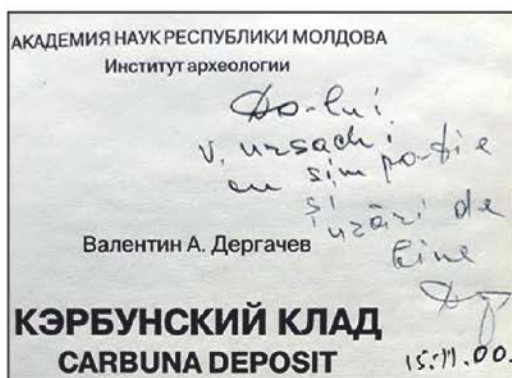 АКАДЕМИЯ НАУК РЕСПУБЛИКИ МОЛДОВА
Институт археологии
Do-lui
V. ursachi
cu simpatie
și
urări de
bine
Валентин А. Дергачев
КЭРБУНСКИЙ КЛАД
CARBUNA DEPOSIT
15.11.00.